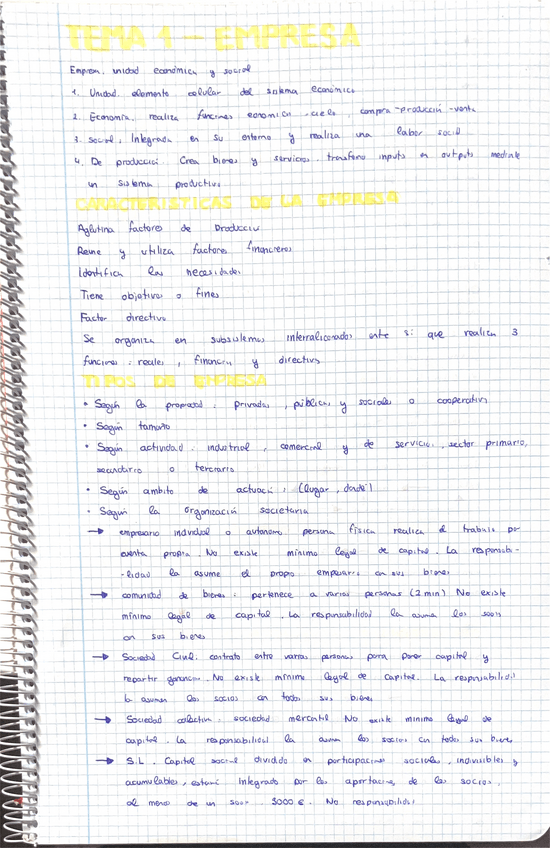 TEMA 1 - EMPRESA
Empresa. unidad económica y social
1. Unidad. elemento celular del sistema económico
2. Economía. realiza funciones economica. ciclo, compra-producción-venta
3. Social. Integrada en su entorno y realiza una labor social
4. De producción. Crea bienes y servicios. transforma inputs en outputs mediante
un sistema productivo
CARACTERISTICAS DE LA EMPRESA
Aglutina factores de producción
Reune y utiliza factores financieros
Identifica las necesidades
Tiene objetivos o fines
Factor directivo
Se organiza en subsistemas interralicionados entre si que realiza 3
funciones: reales, financiera y directiva
TIPOS DE EMPRESA
• Según la propiedad: privadas, públicas y sociales o cooperativas
• Según tamaño
• Según actividad: industrial, comercial y de servicios, sector primario,
secundario o terciario
• Según ambito de actuación (lugar, donde)
• Según la organización societaria
→ empresario individual o autonomo persona física realiza el trabajo por
cuenta propia. No existe mínimo legal de capital. La responsabi-
-lidad la asume el propio empresario en sus bienes
→ comunidad de bienes: pertenece a varias personas (2 min) No existe
mínimo legal de capital. La responsabilidad la asuma los socios
con sus bienes
→ Sociedad Civil. contrato entre varias personas para poner capital y
repartir ganancias. No existe mínimo legal de capital. La responsabilidad
la asumen los socios con todos sus bienes
→ Sociedad colectiva: sociedad mercantil No existe mínimo legal de
capital. La responsabilidad la asuma los socios con todos sus bienes
→ S.L. Capital social dividido en participaciones sociales, indivisibles y
acumulables, estará integrado por las aportaciones de los socios,
al menos de un socio. 3000 €. No responsabilidad